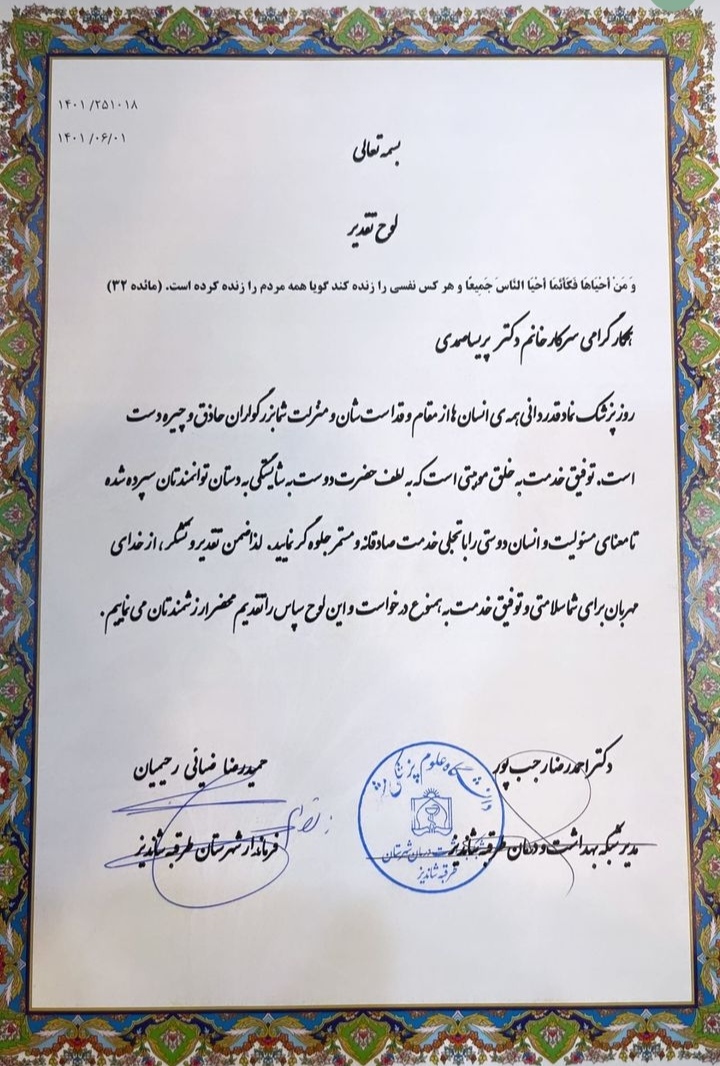 ۱۴۰۱/۲۵۱۰۱۸
۱۴۰۱/۰۶/۰۱
بسمه تعالی
لوح تقدیر
وَ مَنْ أَحْيَاهَا فَكَأَنَّمَا أَحْيَا النَّاسَ جَمِيعًا و هر کس نفسی را زنده کند گویا همه مردم را زنده کرده است. (مائده ۳۲)
همکار گرامی سرکار خانم دکتر پریسا صمدی
روز پزشک نماد قدردانی همه ی انسان ها از مقام و قداست شان و منزلت شما بزرگواران حاذق و چیره دست
است. توفیق خدمت به خلق موهبتی است که به لطف حضرت دوست به شایستگی به دستان توانمندتان سپرده شده
تا معنای مسئولیت و انسان دوستی را با تجلی خدمت صادقانه و مستمر جلوه گر نمایید. لذا ضمن تقدیر و تشکر، از خدای
مهربان برای شما سلامتی و توفیق خدمت به همنوع درخواست و این لوح سپاس را تقدیم محضر ارزشمندتان می نماییم.
دکتر احمدرضا رجب پور
حمیدرضا ضیائی رحیمیان
مدیر شبکه بهداشت و درمان طرقبه شاندیز
فرماندار شهرستان طرقبه شاندیز
دانشگاه علوم پزشکی
درمان شهرستان
طرقبه شاندیز